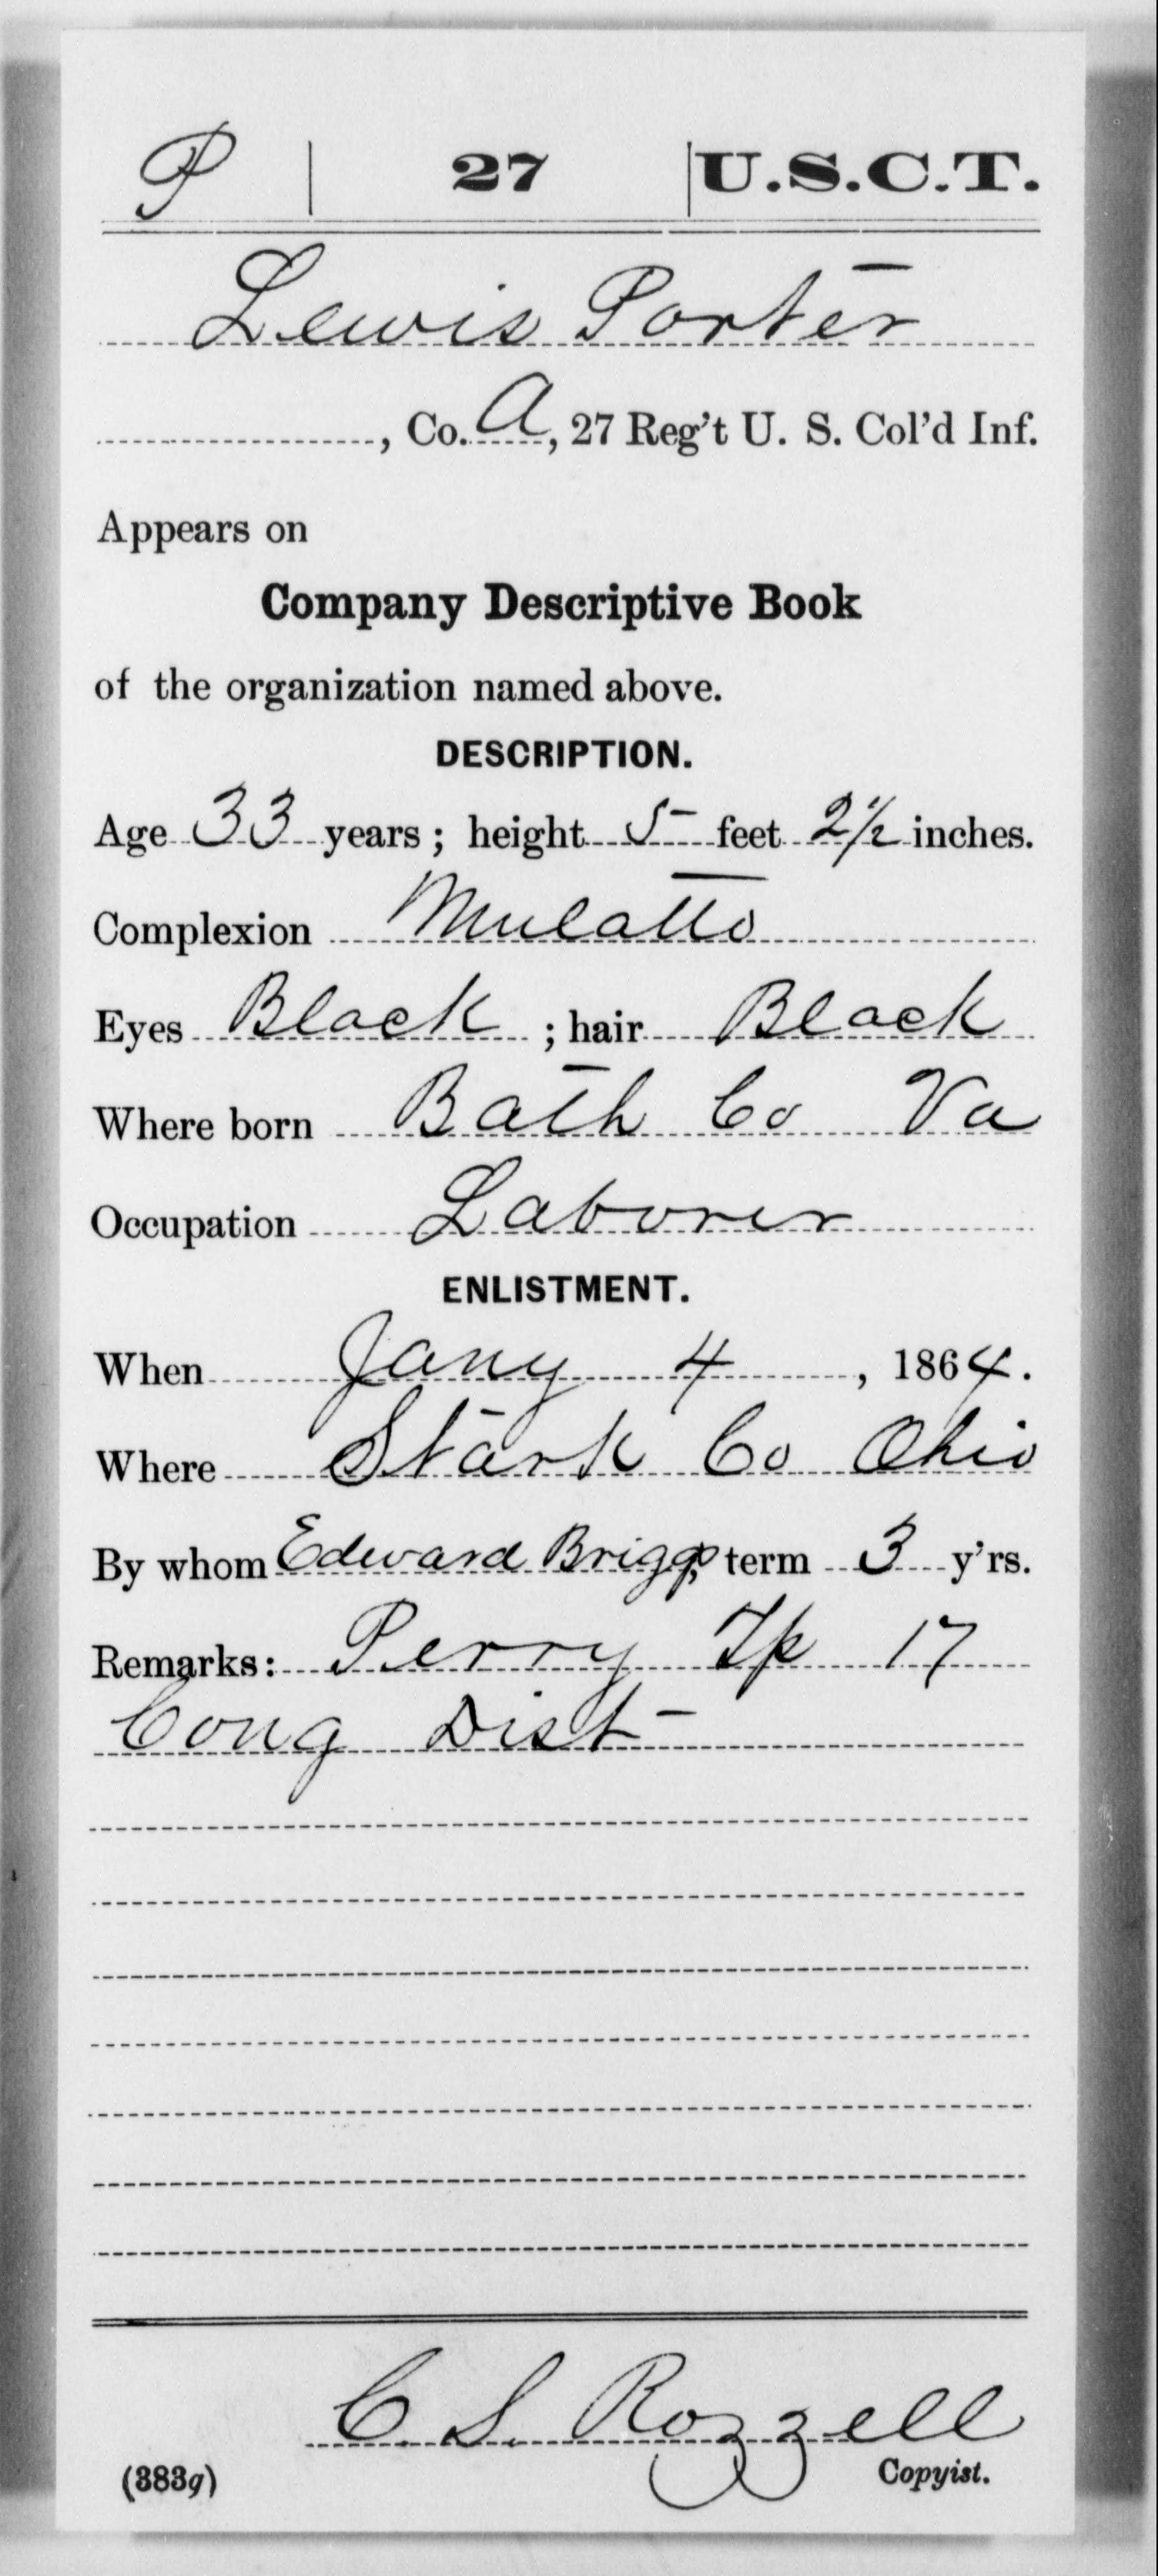 P | 27 | U.S.C.T.
Lewis Porter
, Co. A, 27 Reg't U. S. Col'd Inf.
Appears on
Company Descriptive Book
of the organization named above.
DESCRIPTION.
Age 33 years; height 5 feet 2½ inches.
Complexion Mulatto
Eyes Black; hair Black
Where born Bath Co Va
Occupation Laborer
ENLISTMENT.
When Jany 4, 1864.
Where Stark Co Ohio
By whom Edward Briggs, term 3 y'rs.
Remarks: Perry Tp 17
Cong Dist
C. S. Rozzell
(383g) Copyist.